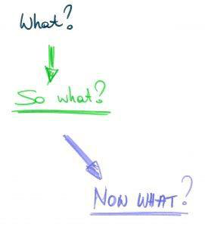 What?
So what?
NOW WHAT?